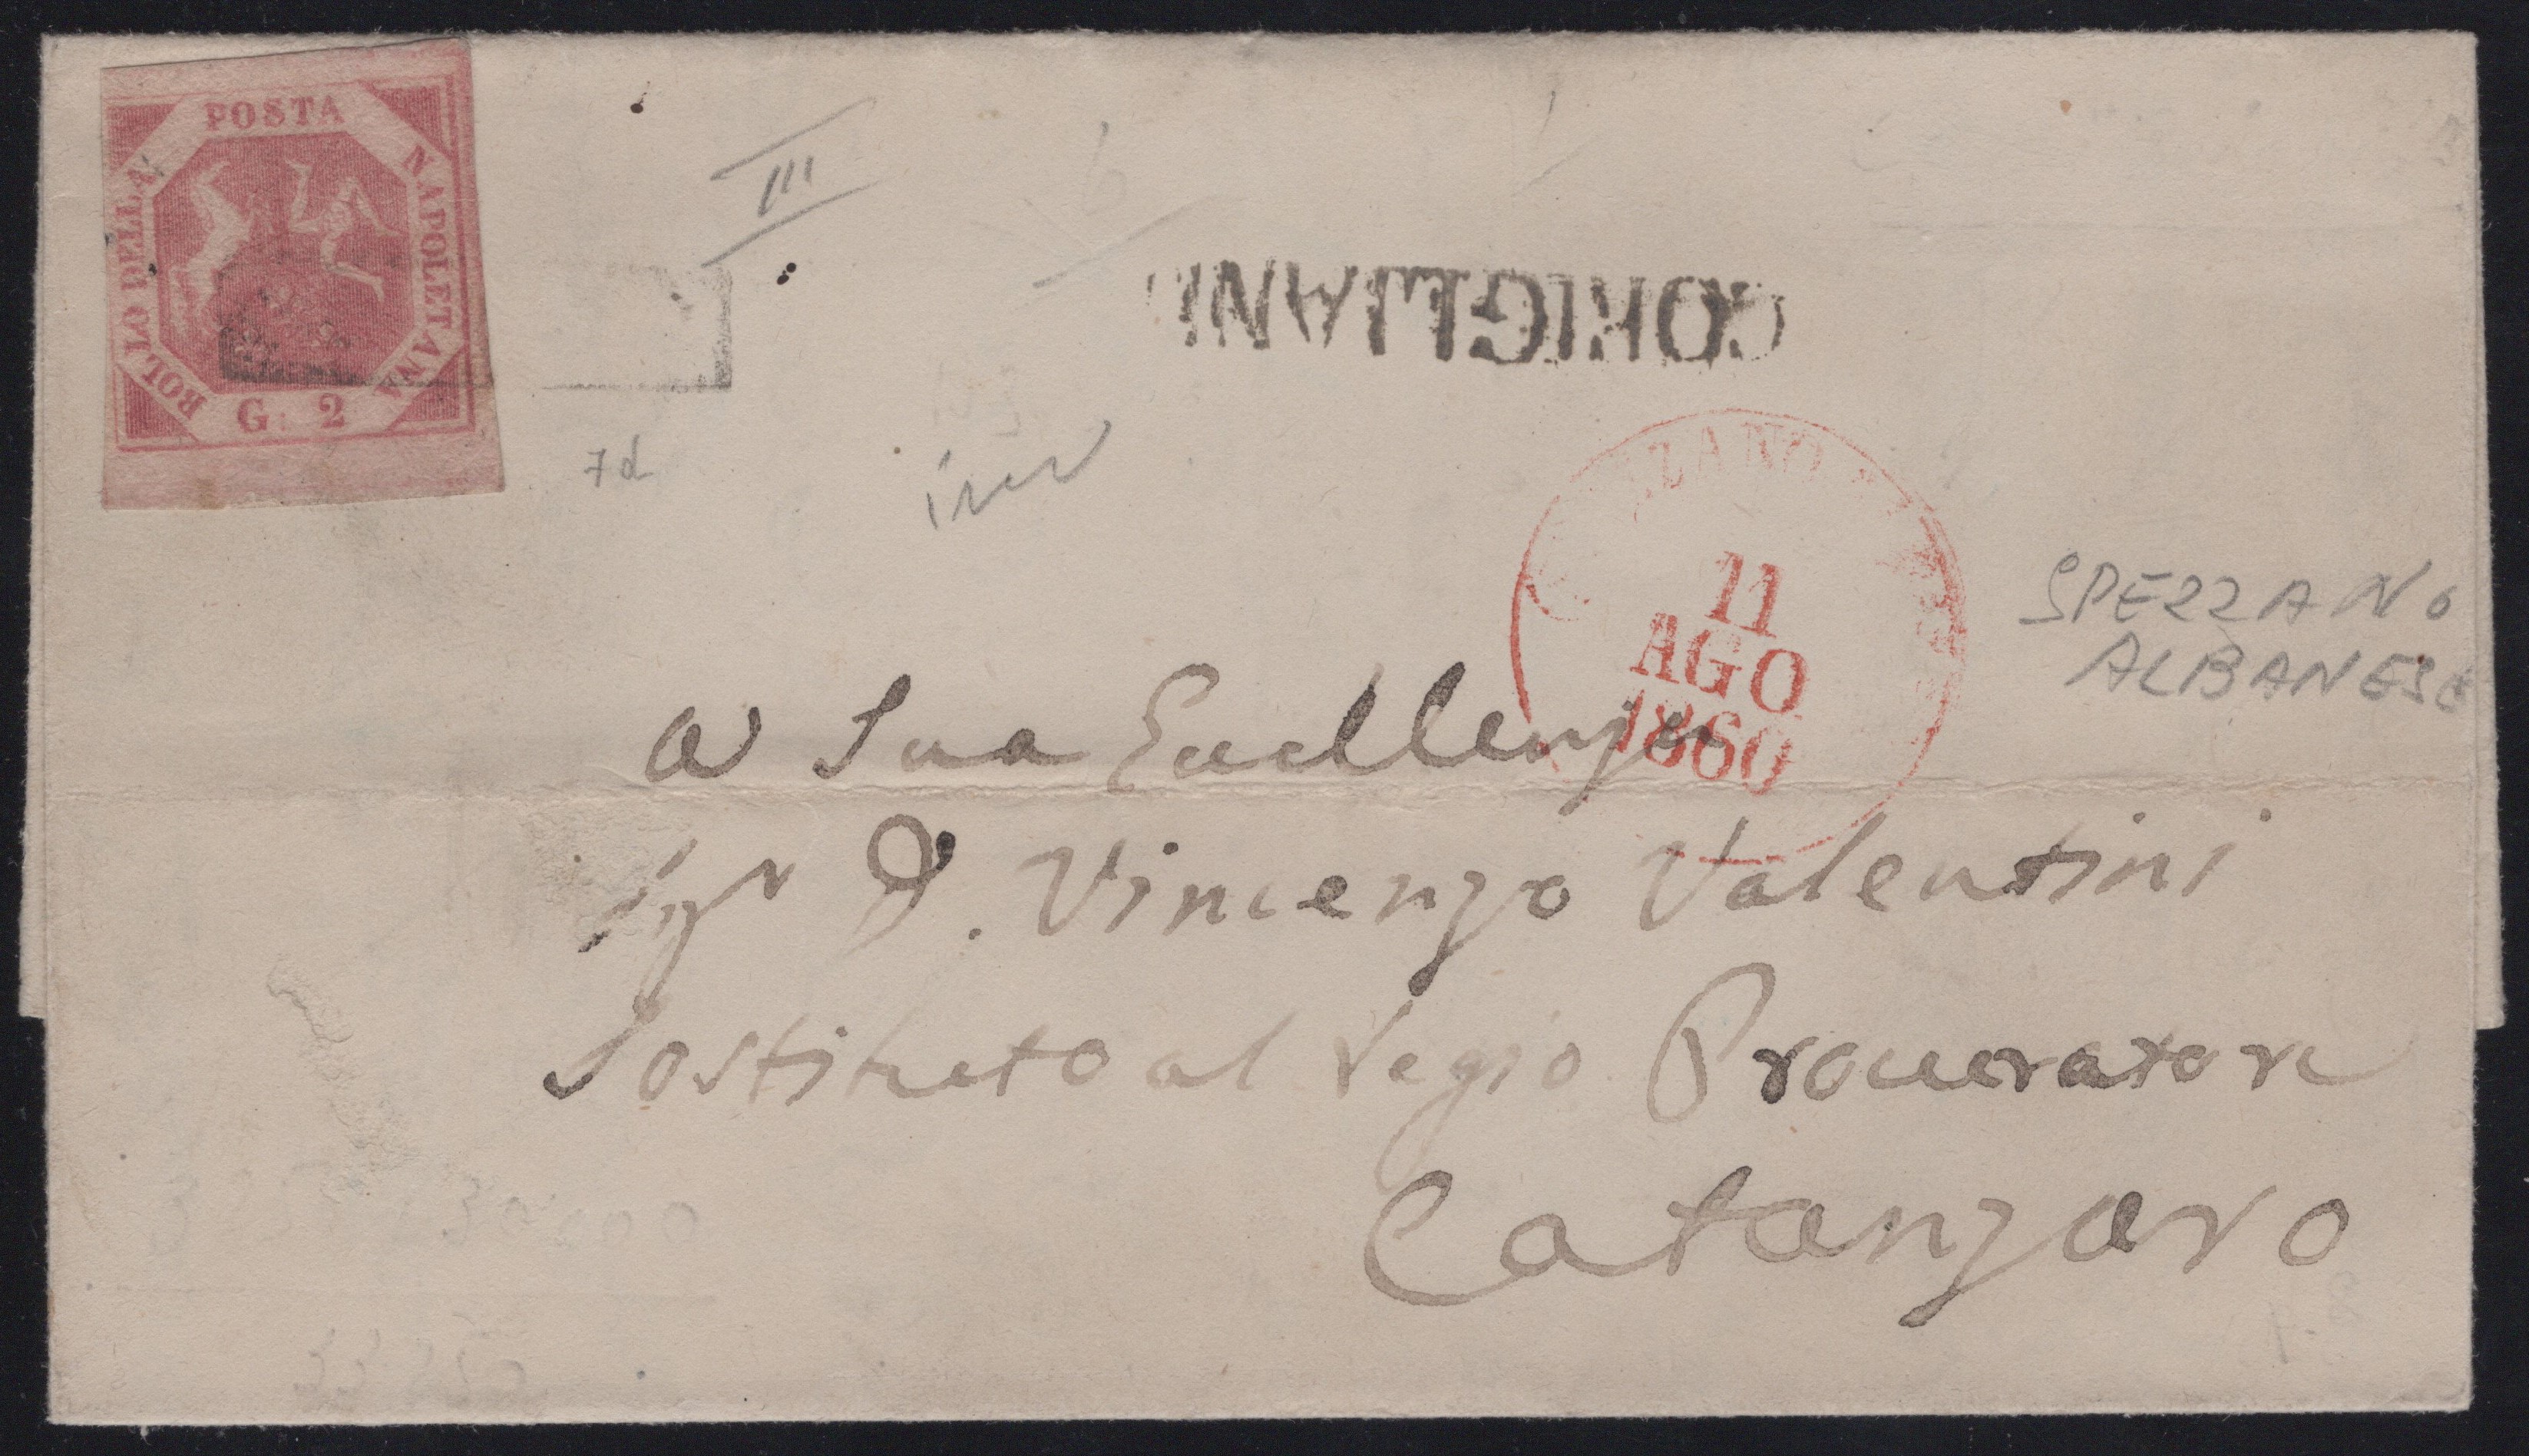 POSTA
NAPOLETANA
BOLLO DELLA
G. 2
III
CORIGLIANO
7d
inv
ZANO
11
AGO
1860
SPEZZANO
ALBANESE
A Sua Eccellenza
Sigr D. Vincenzo Valentini
Sostituto al Regio Procuratore
Catanzaro